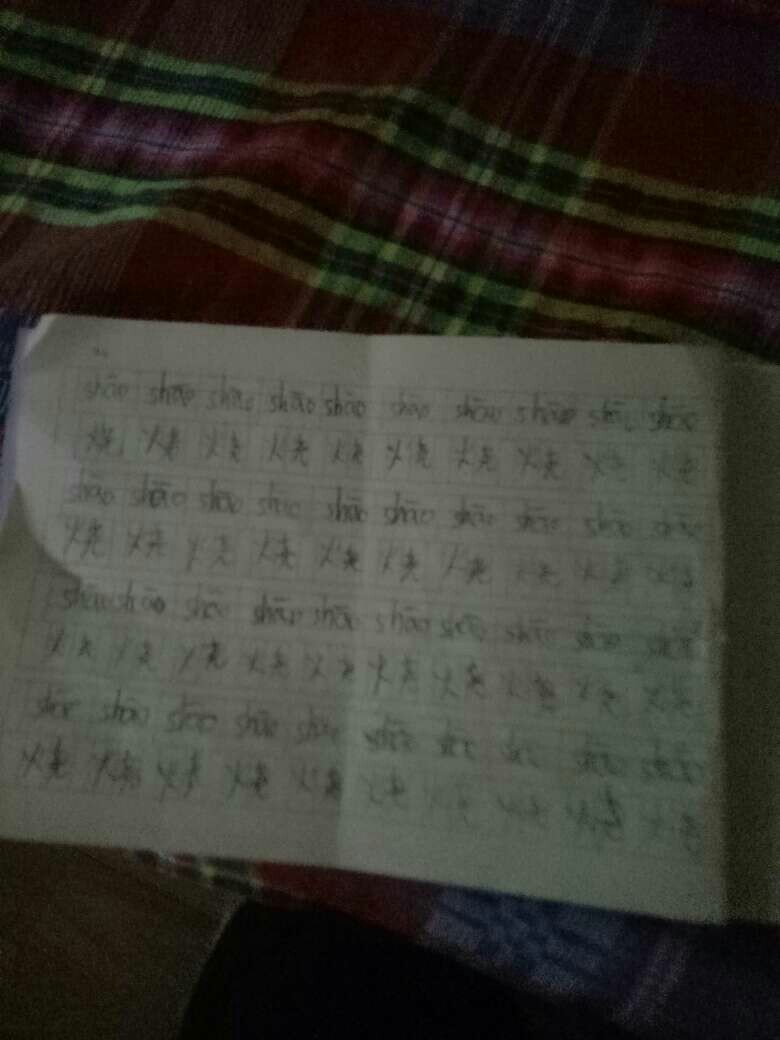 shāo shāo shāo shāo shāo shāo shāo shāo shāo shāo
烧 烧 烧 烧 烧 烧 烧 烧 烧 烧
shāo shāo shāo shāo shāo shāo shāo shāo shāo shāo
烧 烧 烧 烧 烧 烧 烧 烧 烧 烧
shāo shāo shāo shāo shāo shāo shāo shāo shāo shāo
烧 烧 烧 烧 烧 烧 烧 烧 烧 烧
shāo shāo shāo shāo shāo shāo shāo shāo shāo shāo
烧 烧 烧 烧 烧 烧 烧 烧 烧 烧